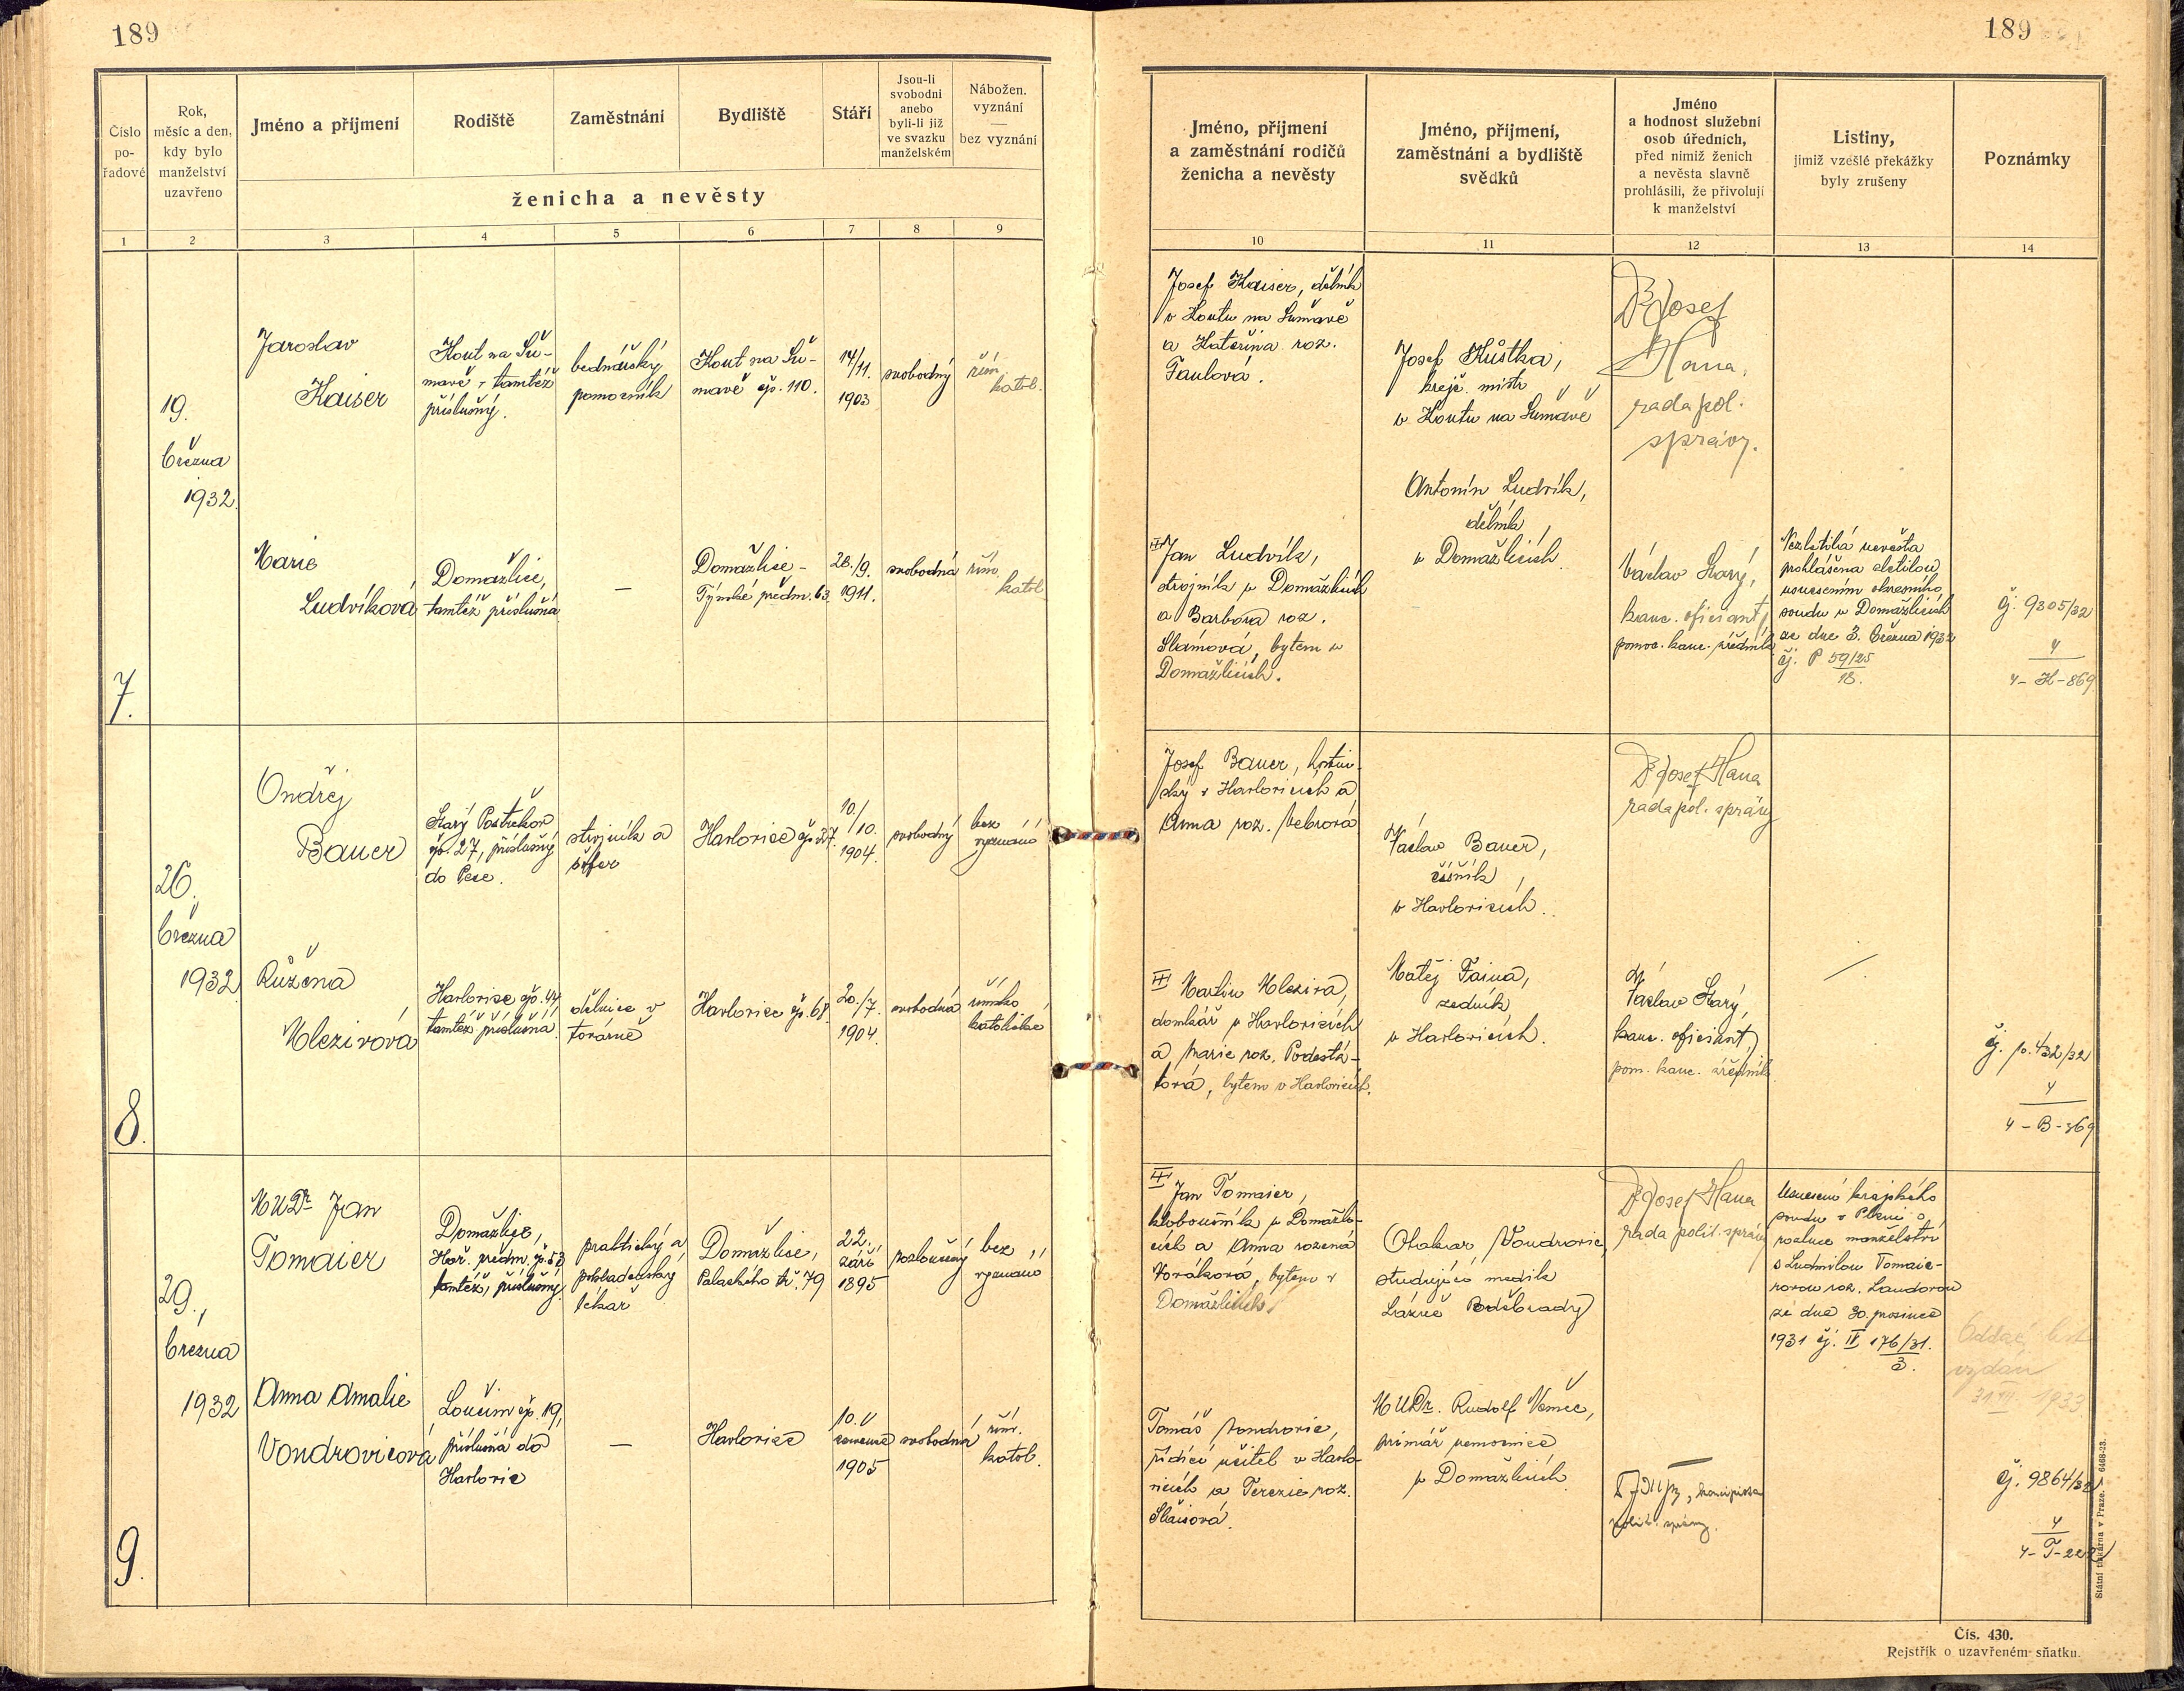 189
Číslo
po-
řadové
Rok,
měsíc a den,
kdy bylo
manželství
uzavřeno
Jméno a příjmení
Rodiště
Zaměstnání
Bydliště
Stáří
Jsou-li
svobodni
anebo
byli-li již
ve svazku
manželském
Nábožen.
vyznání
—
bez vyznání
ženicha a nevěsty
1 2 3 4 5 6 7 8 9
7.
19.
března
1932
Jaroslav
Kaiser
Kout na Šu-
mavě, tamtéž
příslušný.
bednářský
pomocník
Kout na Šu-
mavě čp. 110.
14/11.
1903
svobodný
řím.
katol.
Marie
Ludvíková
Domažlice,
tamtéž příslušná
—
Domažlice -
Týnské předm. 63.
28./9.
1911.
svobodná
řím.
katol.
8.
26.
března
1932
Ondřej
Bauer
Starý Postřekov
čp. 27, příslušný
do Pece.
strojník a
šofer
Havlovice čp. 27.
10./
10.
1904.
svobodný
bez
vyznání
Růžena
Mlezivová
Havlovice čp. 44,
tamtéž příslušná
dělnice v
továrně
Havlovice čp. 68
20./7.
1904.
svobodná
římsko
katolické
9.
29.
března
1932
MUDr. Jan
Tomaier
Domažlice,
Hoř. předm. čp. 53
tamtéž příslušný
praktický a
pokladenský
lékař
Domažlice,
Palackého tř. 79
22.
září
1895
rozloučený
bez
vyznání
Anna Amalie
Vondrovicová
Loučim čp. 19,
příslušná do
Havlovic
—
Havlovice
10.
července
1905
svobodná
řím.
katol.
189
Jméno, příjmení
a zaměstnání rodičů
ženicha a nevěsty
Jméno, příjmení,
zaměstnání a bydliště
svědků
Jméno
a hodnost služební
osob úředních,
před nimiž ženich
a nevěsta slavně
prohlásili, že přivolují
k manželství
Listiny,
jimiž vzešlé překážky
byly zrušeny
Poznámky
10 11 12 13 14
Josef Kaiser, dělník
v Koutu na Šumavě
a Kateřina roz.
Paulová.
Josef Kůstka,
krejč. mistr
v Koutu na Šumavě
Dr Josef
Hana,
rada pol.
správy.
Jan Ludvík,
strojník v Domažlicích
a Barbora roz.
Slámová, bytem v
Domažlicích.
Antonín Ludvík,
dělník
v Domažlicích.
Václav Starý,
kanc. oficiant,
pomoc. kanc. úředník
Nezletilá nevěsta
prohlášena zletilou
usnesením okresního
soudu v Domažlicích
ze dne 3. března 1932
čj. P 59/25
18.
čj. 9305/32
4
4-K-869
Josef Bauer, hostin-
ský v Havlovicích a
Anna roz. Vebrová
Václav Bauer,
číšník,
v Havlovicích.
Dr Josef Hana
rada pol. správy
Martin Mleziva,
domkář v Havlovicích
a Marie roz. Podestá-
tová, bytem v Havlovicích.
Matěj Faina,
zedník
v Havlovicích.
Václav Starý,
kanc. oficiant,
pom. kanc. úředník
čj. 10.432/32
4
4-B-369
Jan Tomaier,
kloboučník v Domažli-
cích a Anna rozená
Vorákorá, bytem v
Domažlicích
Otakar Vondrovic
studující medik
Lázně Poděbrady
Dr Josef Hana
rada polit. správy
Usnesení krajského
soudu v Plzni o
rozluce manželství
s Ludmilou Tomaie-
rovou roz. Laudorou
ze dne 30. prosince
1931 čj. II 176/31.
3.
Oddac. list
vydán
1933
Tomáš Vondrovic,
řídící učitel v Havlo-
vicích a Terezie roz.
Slaisová.
MUDr. Rudolf Němec,
primář nemocnice
v Domažlicích.
koncipista
polit. správy.
čj. 9864/32
4
4-T-222
Státní tiskárna v Praze. — 6468-23.
Čís. 430.
Rejstřík o uzavřeném sňatku.